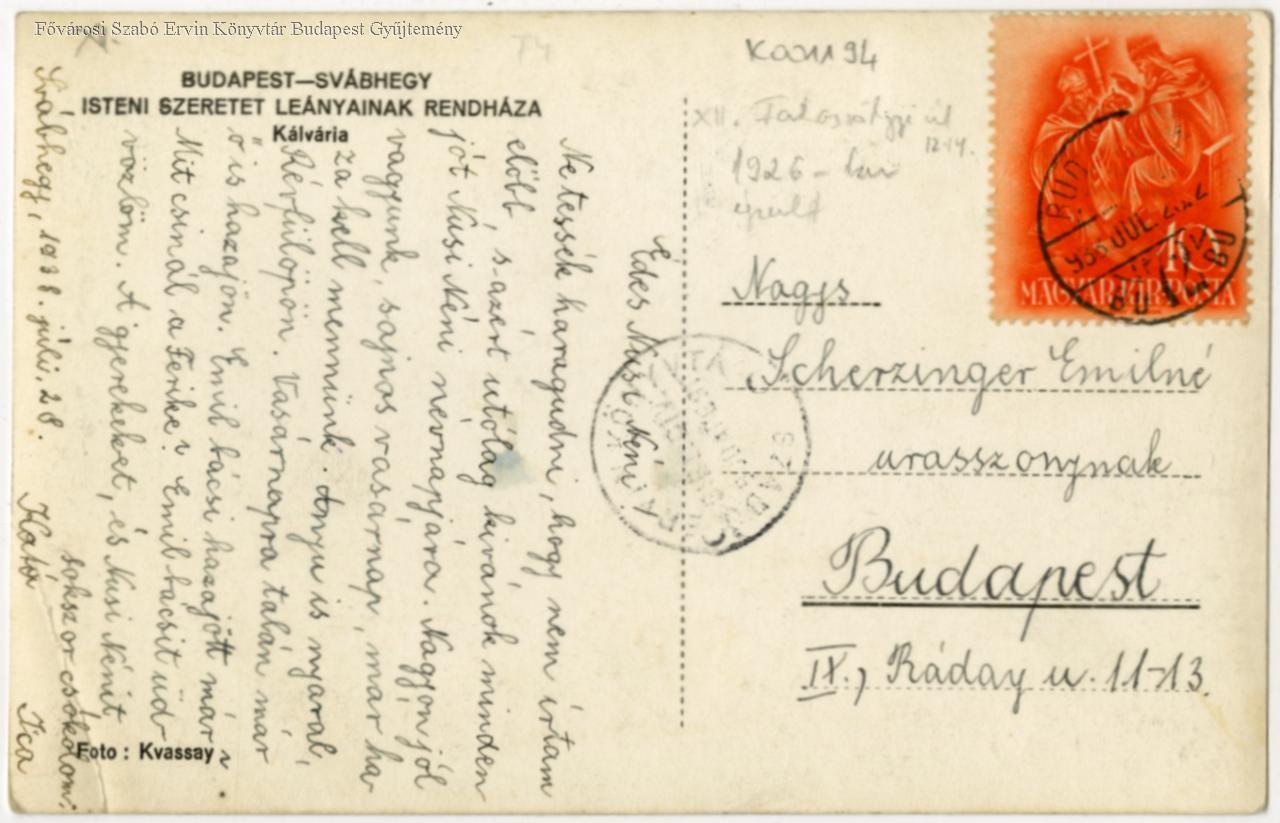 Fővárosi Szabó Ervin Könyvtár Budapest Gyűjtemény
BUDAPEST—SVÁBHEGY
ISTENI SZERETET LEÁNYAINAK RENDHÁZA
Kálvária
XII.
12-14.
1926-ban
épült
MAGYAR KIR. POSTA
10
Nagys
Scherzinger Emilné
urasszonynak
Budapest
IX., Ráday u. 11-13.
Édes Nusi Néni,
Ne tessék haragudni, hogy nem írtam
előbb, s-azért utólag kivánok minden
jót Nusi Néni nevnapjára. Nagyon jól
vagyunk, sajnos vasarnap, mar ha
za kell mennünk. Anyu is nyaral,
Révfülöpön. Vasárnapra talán már
ő is hazajön. Emil bácsi hazajött már?
Mit csinál a Ferike? Emil bácsit üd-
vözlöm. A gyerekeket, és Nusi Nénit
sokszor csókolom:
Kató Ica
Svábhegy, 1938. júli. 28.
Foto: Kvassay